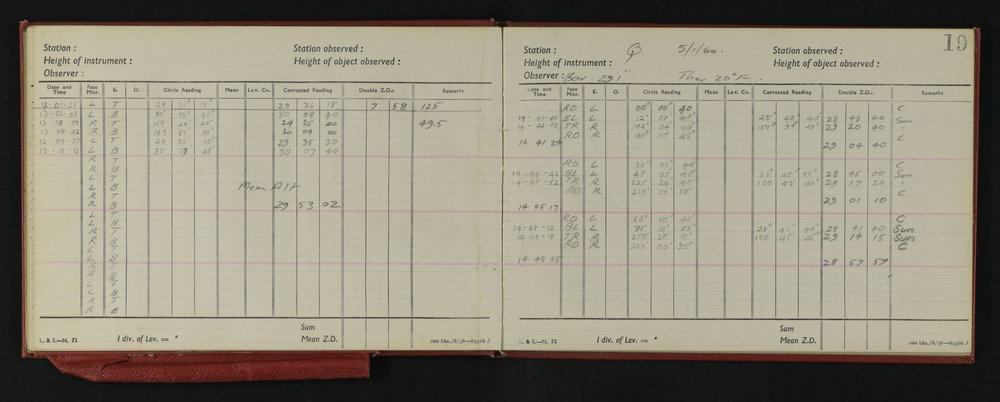 Station : Station observed :
Height of instrument : Height of object observed :
Observer :
Date and Time Face Micr. E. O. Circle Reading Mean Lev. Cn. Corrected Reading Double Z.D.s Remarks
L T 29 36 15 7 58 125
13-02-05 L B 30 08 40
13-08-09 R T 150 24 20" 29 35 40 49.5
R B 149 51 00" 30 09 00
L T 29 35 30" 29 35 30
L B 30 07 40" 30 07 40
R T
R B
L T
L B Mean Alt
R T
R B 29 53 02
L T
L B
R T
R B
L T
L B
R T
R B
L T
L B
R T
R B
Sum
1 div. of Lev. = " Mean Z.D.
L. & S.—N. 72 200 bks./6/56—65466 J
19
Station : 5/1/60. Station observed :
Height of instrument : Height of object observed :
Observer : Bar 29 1" Ther 20°F.
Date and Time Face Micr. E. O. Circle Reading Mean Lev. Cn. Corrected Reading Double Z.D.s Remarks
RO L 00° 00' 40 C
BL L 12° 07' 40" 28° 48' 40" 28 48 40 Sun
TR R 192° 24 40" 150° 39' 29 20 40 "
RO R 180° 00' C
14 41 24 29 04 40
RO L 30° 00' 40" C
14-44-42 BL L 28° 45' 00" 28 45 00 Sun
TR R 221° 24 150 42' 40" 29 17 20 "
RO R 210° 00' C
14 45 17 29 01 10
RO L 60° 00' 40" C
14-48-12 BL L 70° 10' 55" 28° 41' 40" 28 41 40 Sun
14-49-18 TR R 250° 28' 10" 150 45' 45" 29 14 15 Sun
RO R 240° 00' 35" C
28 57 57
Sum
1 div. of Lev. = " Mean Z.D.
L. & S.—N. 72 200 bks./6/56—65466 J